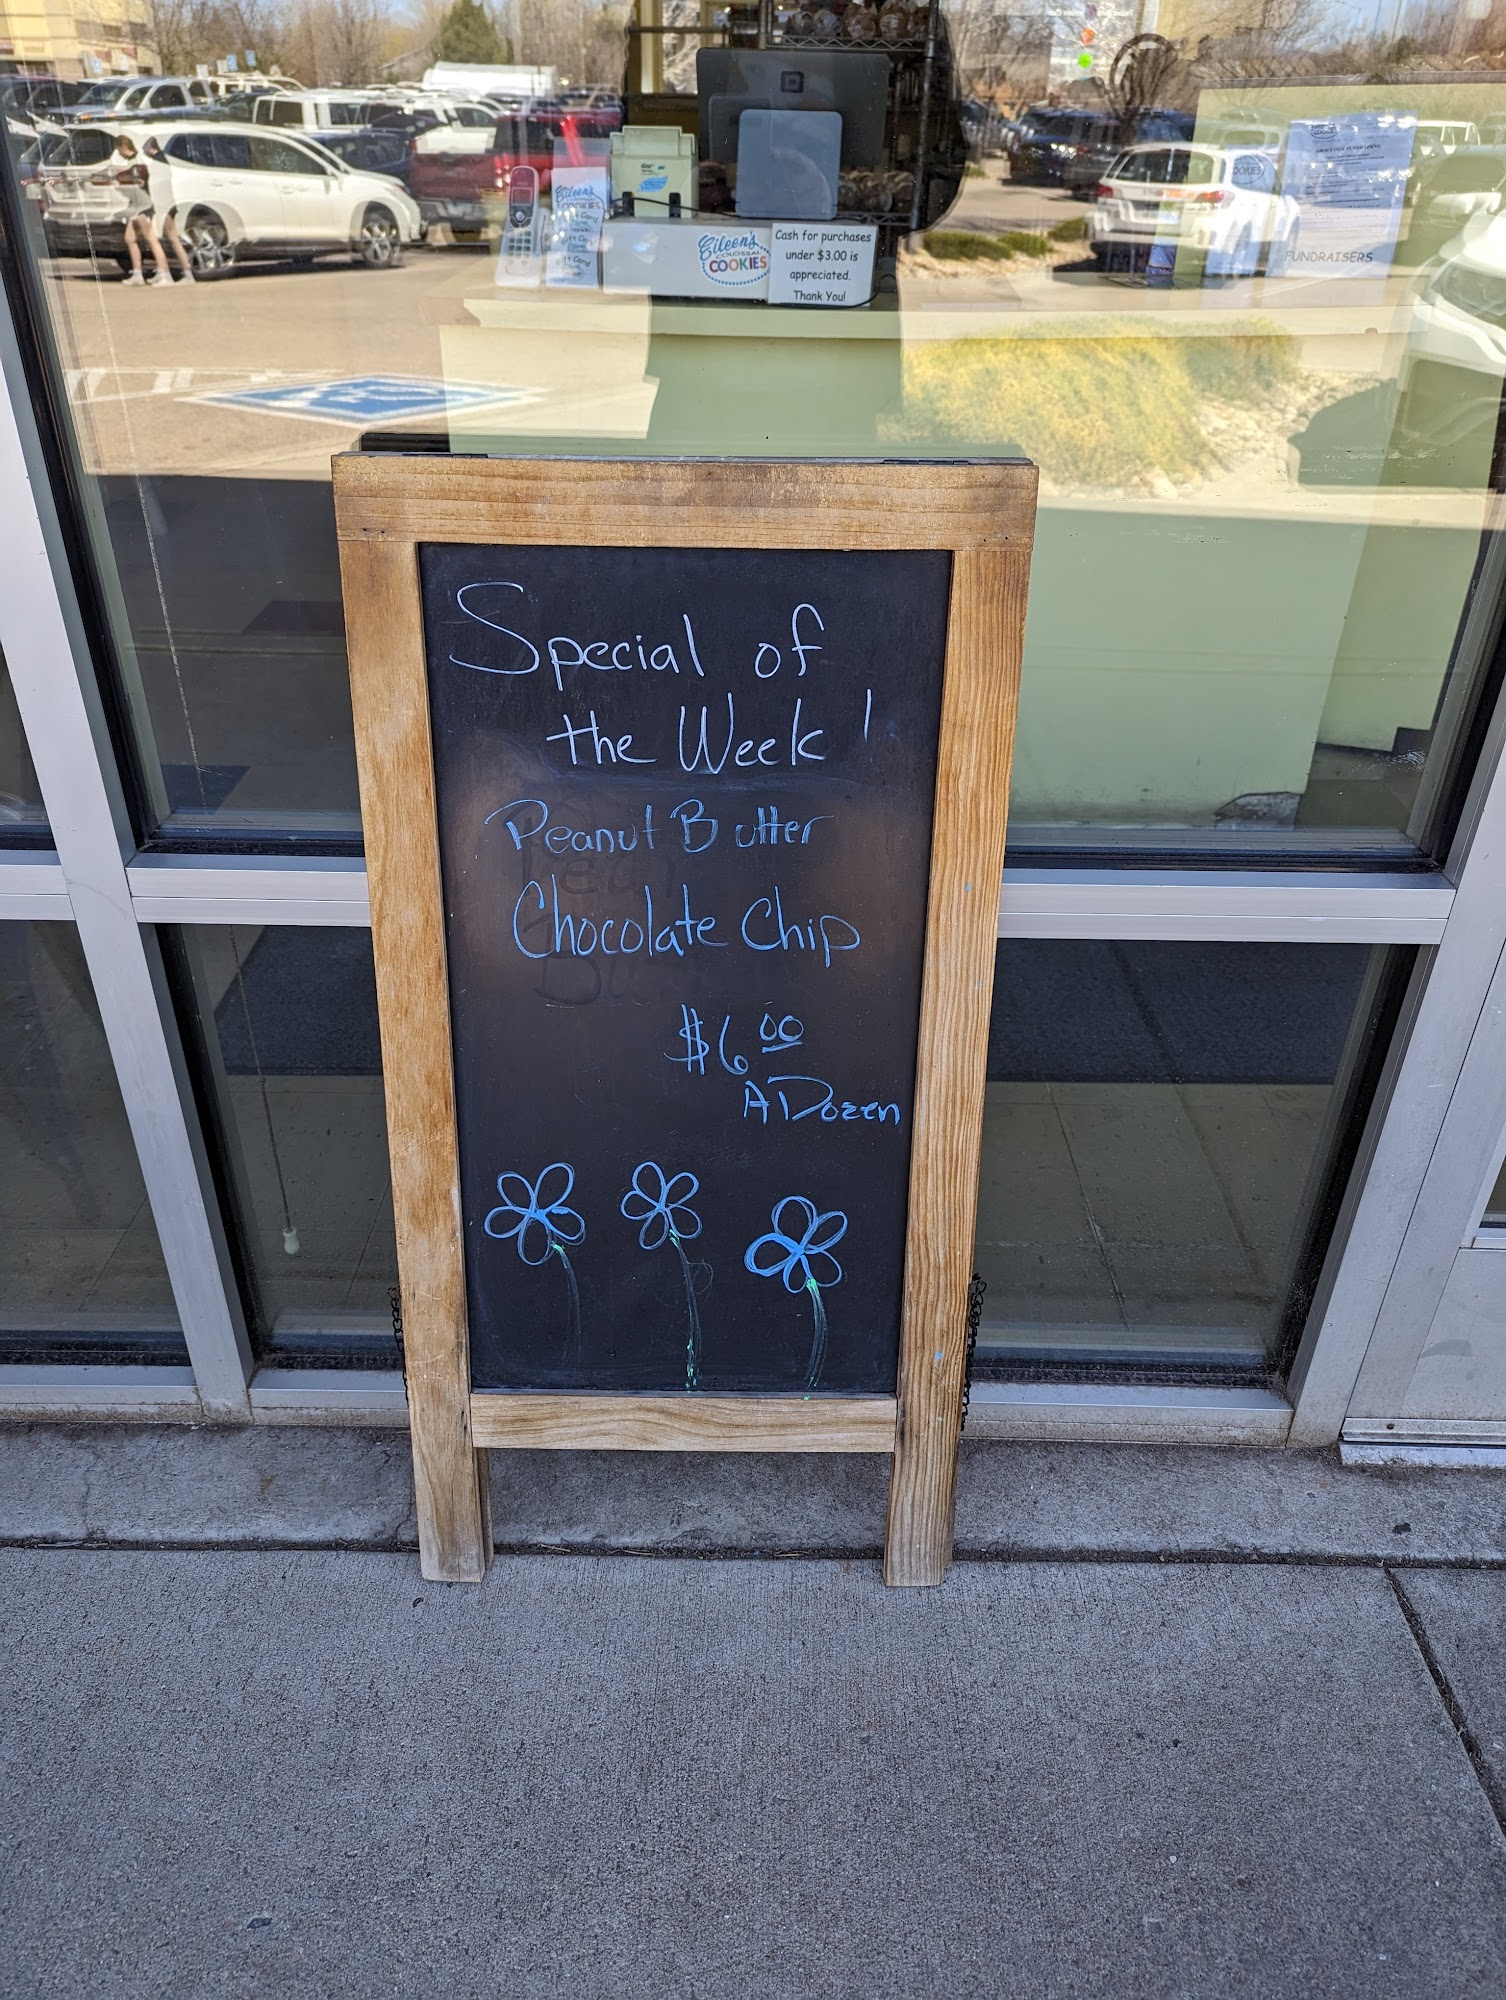 Eileen's
COOKIES
Gift Card
Eileen's
COLOSSAL
COOKIES
Cash for purchases
under $3.00 is
appreciated.
Thank You!
COOKIES
FUNDRAISERS
Special of
the Week!
Peanut Butter
Chocolate Chip
$6 00
A Dozen